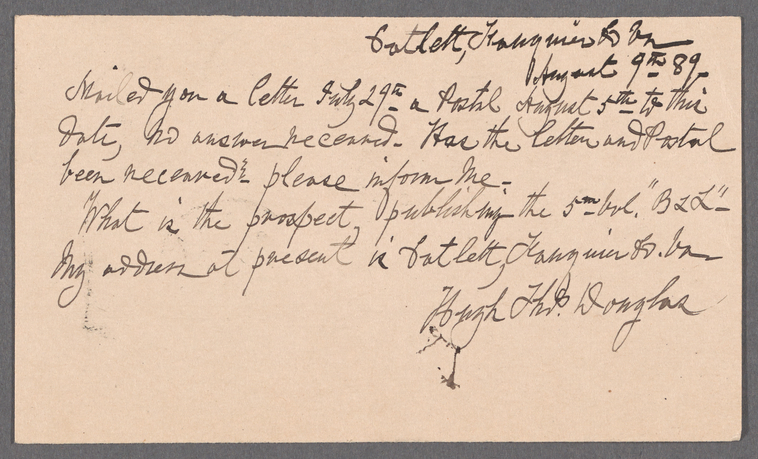 Catlett, Fauquier Co Va
August 9th 89
Mailed you a letter July 29th a Postal August 5th to this
date, no answer received. Has the letter and Postal
been received? please inform me.
What is the prospect, publishing the 5th Vol. "B & L"
My address at present is Catlett, Fauquier Co. Va
Hugh Thos. Douglas